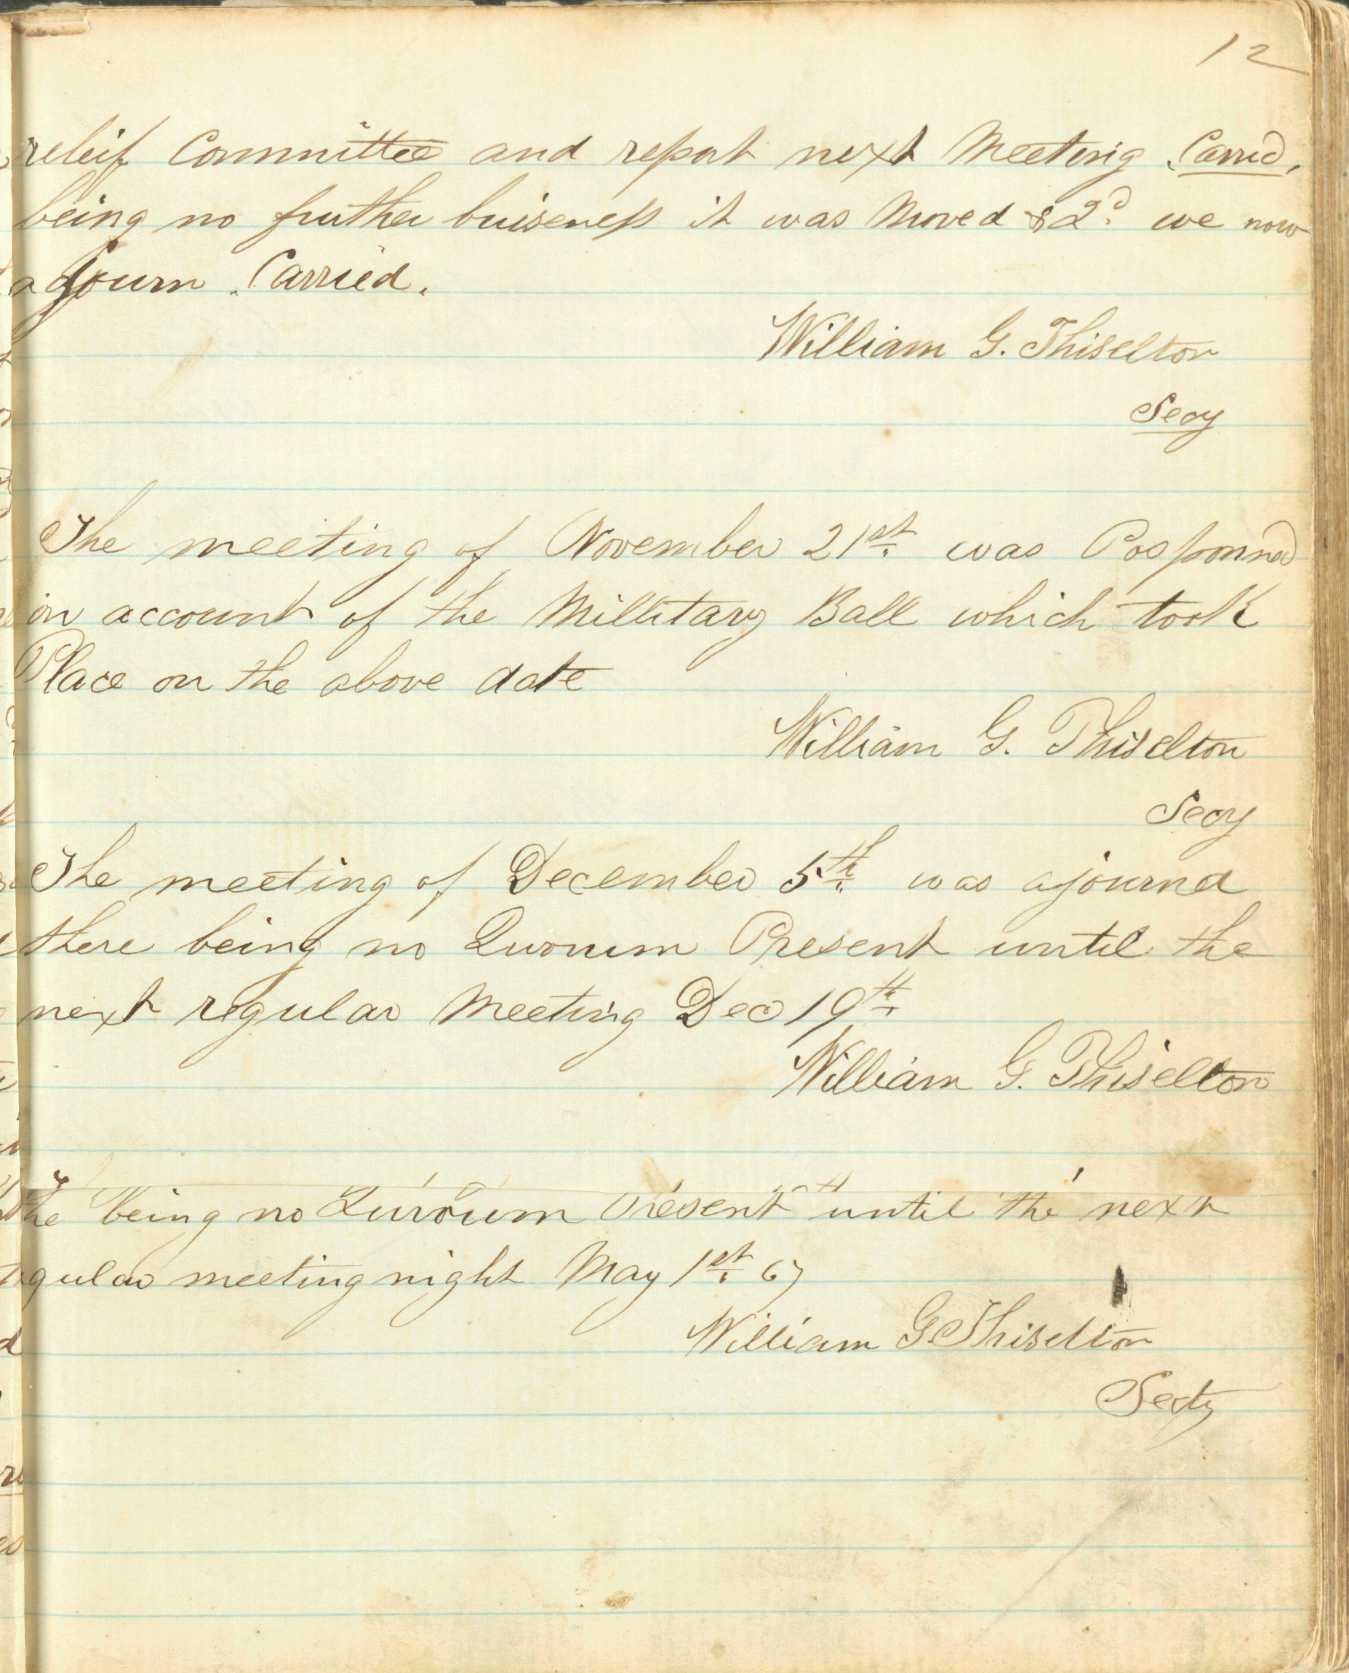 12
releif Committee and report next Meeting Carried,
being no further buiseness it was Moved & 2d we now
adjourn Carried.
William G. Thiselton
Secy
The meeting of November 21st was Posponned
on account of the Millitary Ball which took
Place on the above date
William G. Thiselton
Secy
The meeting of December 5th was ajournd
there being no Quorum Present until the
next regular Meeting Dec 19th
William G. Thiselton
being no Quroum Present until the next
gular meeting night May 1st 67
William G. Thiselton
Secty